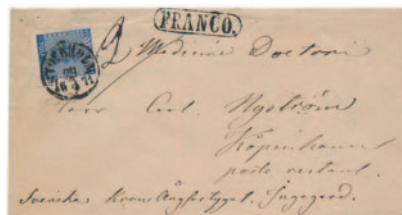 FRANCO.
STOCKHOLM
2 Medicine Doctorn
Herr Carl. Nyström
Köpenhamn
poste restant.
Svenska Krono Ångfartyget. Ingegerd.